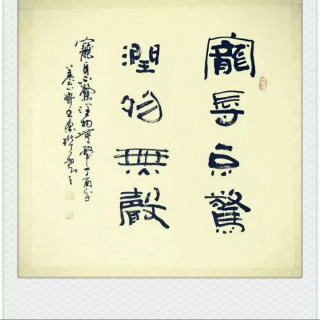 寵辱不驚
潤物無聲
寵辱不驚潤物無聲丁酉年